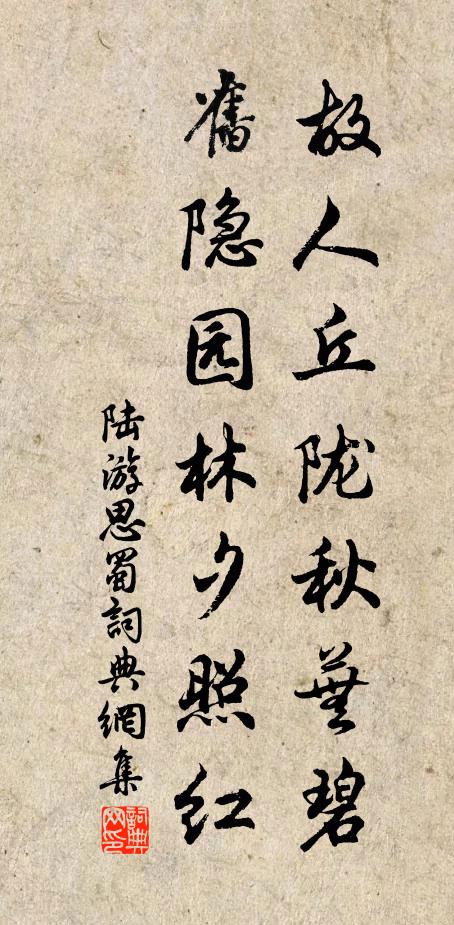 故人丘陇秋蕪碧
舊隐园林夕照红
陆游思蜀詞典網集
詞典网印